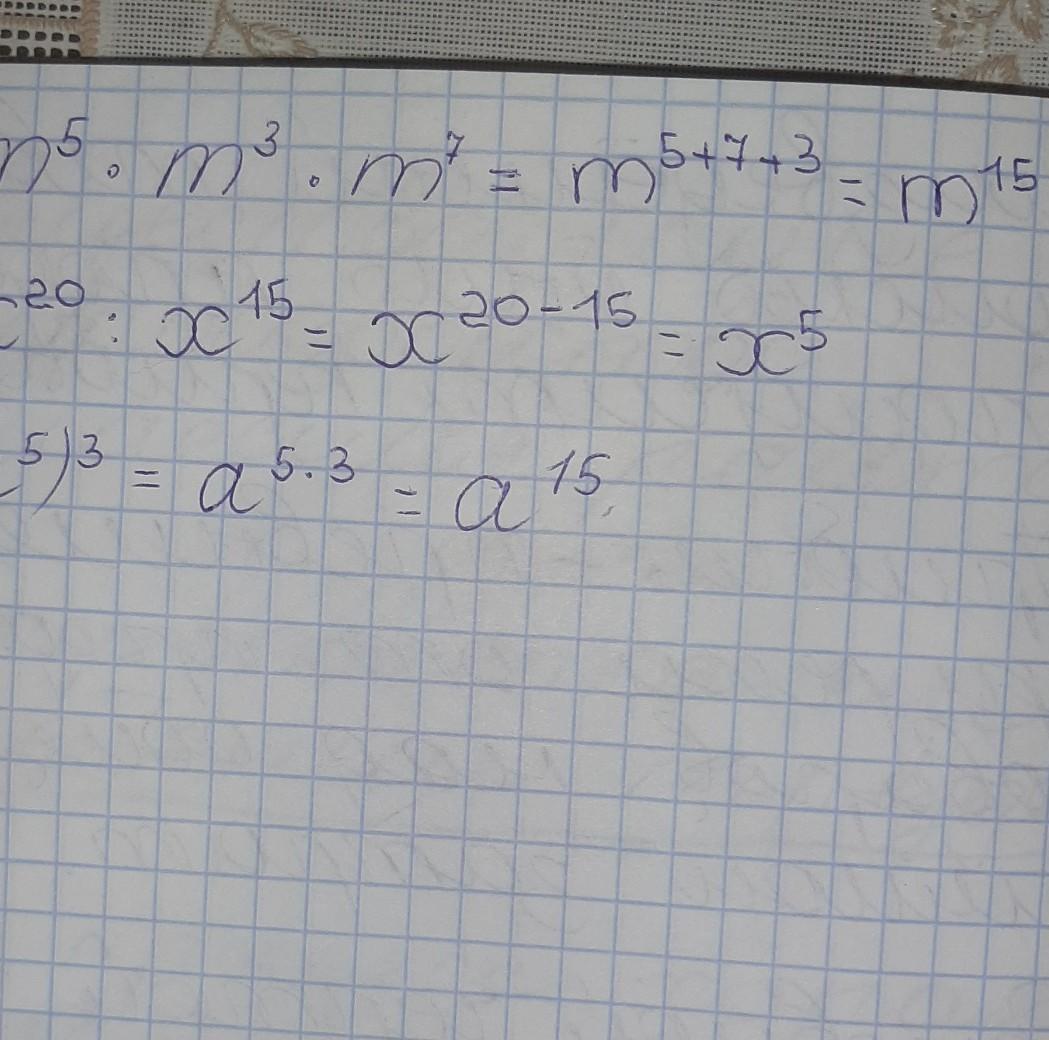 m⁵ · m³ · m⁷ = m⁵⁺⁷⁺³ = m¹⁵
²⁰ : x¹⁵ = x²⁰⁻¹⁵ = x⁵
⁵)³ = a⁵·³ = a¹⁵